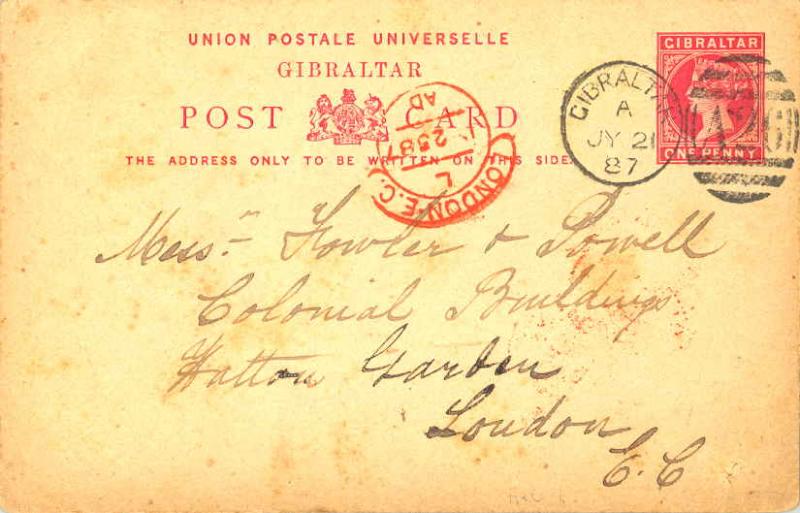 UNION POSTALE UNIVERSELLE
GIBRALTAR
POST CARD
THE ADDRESS ONLY TO BE WRITTEN ON THIS SIDE.
GIBRALTAR
ONE PENNY
GIBRALTAR
A
JY 21
87
A26
LONDON.E.C.
L
25 87
AD
Messrs Fowler & Powell
Colonial Buildings
Hatton Garden
London
E.C